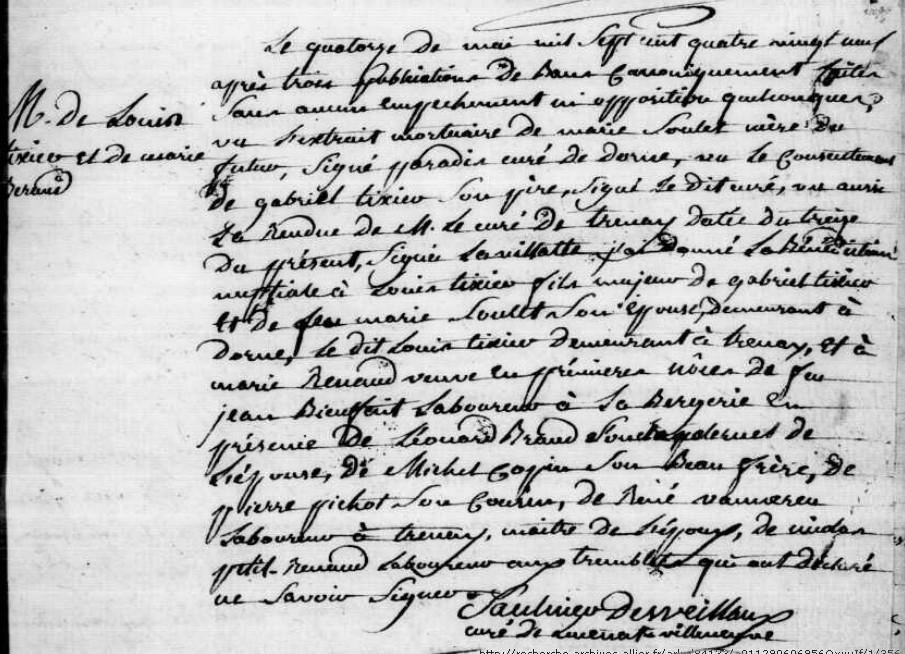 Le quatorze de mai mil sept cent quatre vingt neuf
après trois publications de Bans Canoniquement faites
Sans aucun empechement ni opposition quelconques,
vu l'extrait mortuaire de marie Soulet mère du
futur, Signé paradis curé de dorne, vu le Consentement
de gabriel tixier Son père, Signé le dit curé, vu aussi
La Rendue de M. Le curé de trevay datée du treize
du présent, Signée Lavillatte j'ai donné La Bénédiction
nuptiale à Louis tixier fils majeur de gabriel tixier
et de feu marie Soulet Son épouse, demeurant à
dorne, Le dit Louis tixier demeurant à trevay, et à
marie Renaud veuve en premieres nôces de feu
jean Laboureur à La Bergerie en
présence de Léonard Braud de
L'épouse, de Michel Copin Son Beau frère, de
pierre pichot Son Cousin, de René
Laboureur à trevay, maitre de L'époux, de nicolas
petit-Renaud Laboureur aux trembles qui ont déclaré
ne Savoir Signer
M. de Louis
tixier et de marie
Renaud
Saulnier Desveillaux
curé de Lucenat villeneuve